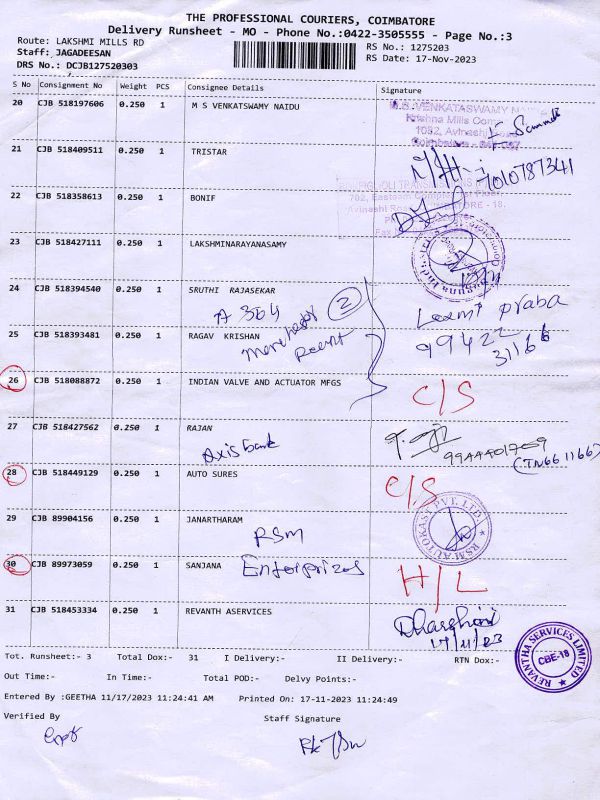 THE PROFESSIONAL COURIERS, COIMBATORE
Delivery Runsheet - MO - Phone No.:0422-3505555 - Page No.:3
Route: LAKSHMI MILLS RD
RS No.: 1275203
Staff: JAGADEESAN
RS Date: 17-Nov-2023
DRS No.: DCJB127520303
S No Consignment No Weight PCS Consignee Details Signature
20 CJB 518197606 0.250 1 M S VENKATSWAMY NAIDU
M.S. VENKATASWAMY
Krishna Mills
1032, Avinashi Road
21 CJB 518409511 0.250 1 TRISTAR
7010787341
22 CJB 518358613 0.250 1 BONIF
23 CJB 518427111 0.250 1 LAKSHMINARAYANASAMY
24 CJB 518394540 0.250 1 SRUTHI RAJASEKAR
A 304 2
Laxmi Praba
25 CJB 518393481 0.250 1 RAGAV KRISHAN
99422
31166
26 CJB 518088872 0.250 1 INDIAN VALVE AND ACTUATOR MFGS
C/S
27 CJB 518427562 0.250 1 RAJAN
Axis bank
(TN66 1166)
28 CJB 518449129 0.250 1 AUTO SURES
C/S
29 CJB 89904156 0.250 1 JANARTHARAM
RSM
RSM AUTOKAST PVT. LTD.
30 CJB 89973059 0.250 1 SANJANA Enterprizes
H/L
31 CJB 518453334 0.250 1 REVANTH ASERVICES
Dharshini
17/11/23
REVANTHA SERVICES LIMITED
CBE-18
Tot. Runsheet:- 3 Total Dox:- 31 I Delivery:- II Delivery:- RTN Dox:-
Out Time:- In Time:- Total POD:- Delvy Points:-
Entered By :GEETHA 11/17/2023 11:24:41 AM Printed On: 17-11-2023 11:24:49
Verified By Staff Signature